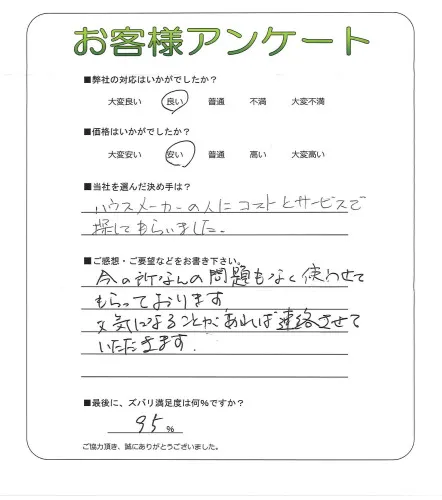 お客様アンケート
■弊社の対応はいかがでしたか？
大変良い 良い 普通 不満 大変不満
■価格はいかがでしたか？
大変安い 安い 普通 高い 大変高い
■当社を選んだ決め手は？
ハウスメーカーの人にコストとサービスで
探してもらいました。
■ご感想・ご要望などをお書き下さい。
今の所なんの問題もなく使わせて
もらっております。
又気になることがあれば連絡させて
いただきます.
■最後に、ズバリ満足度は何％ですか？
95 %
ご協力頂き、誠にありがとうございました。